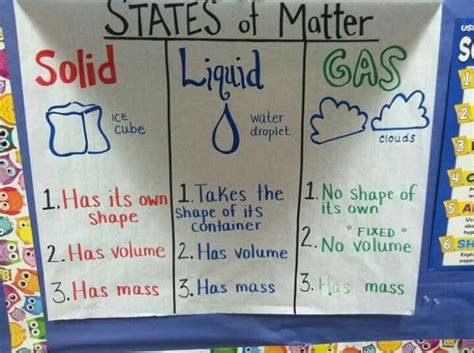 STATES of Matter
Solid
ice
cube
1. Has its own
shape
2. Has volume
3. Has mass
Liquid
water
droplet
1. Takes the
shape of its
container
2. Has volume
3. Has mass
GAS
clouds
1. No shape of
its own
"FIXED"
2. No volume
3. Has mass